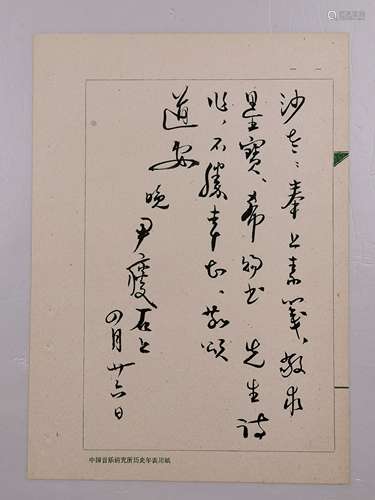 沙老：奉上素笺、敬求
墨宝、希能书 先生诗
作，不胜幸甚、敬颂
道安
晚
尹瘦石上
四月廿六日
中国音乐研究所历史年表用纸